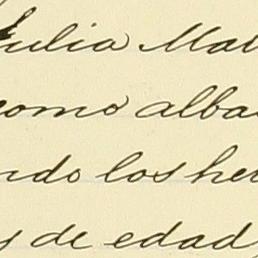 Julia Mat
como alba
ndo los her
y de edad,